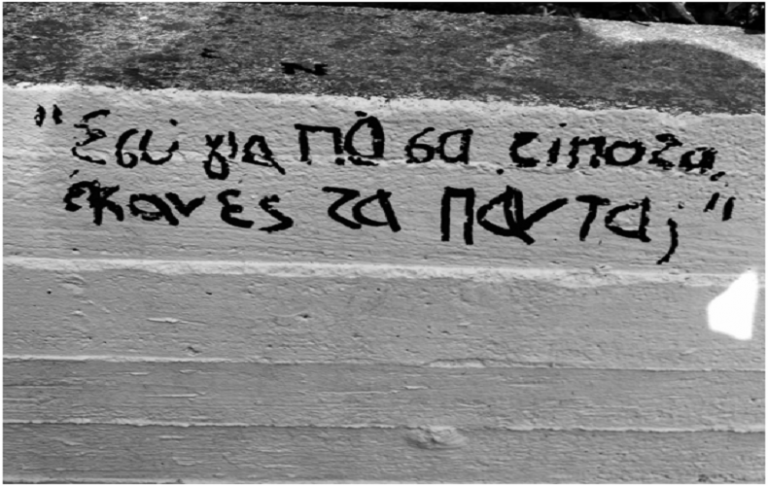 "Εσύ για ΠΌ σα τίποτα,
έκανες τα Πάντα;"